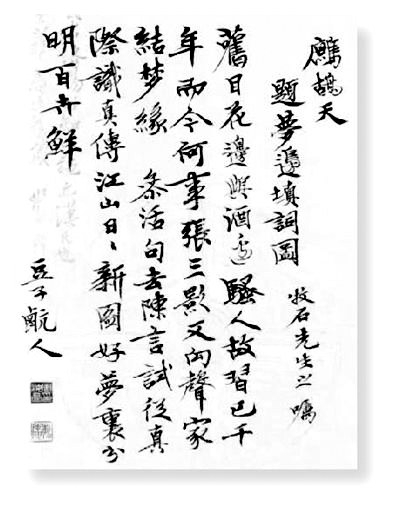 鷓鴣天
題夢邊填詞圖 牧石先生之囑
舊日花邊與酒邊騷人故習已千
年而今何事張三影又向聲家
結梦緣 參活句去陳言試從真
際識真傳江山日〻新圖好夢裏分
明百卉鮮
人